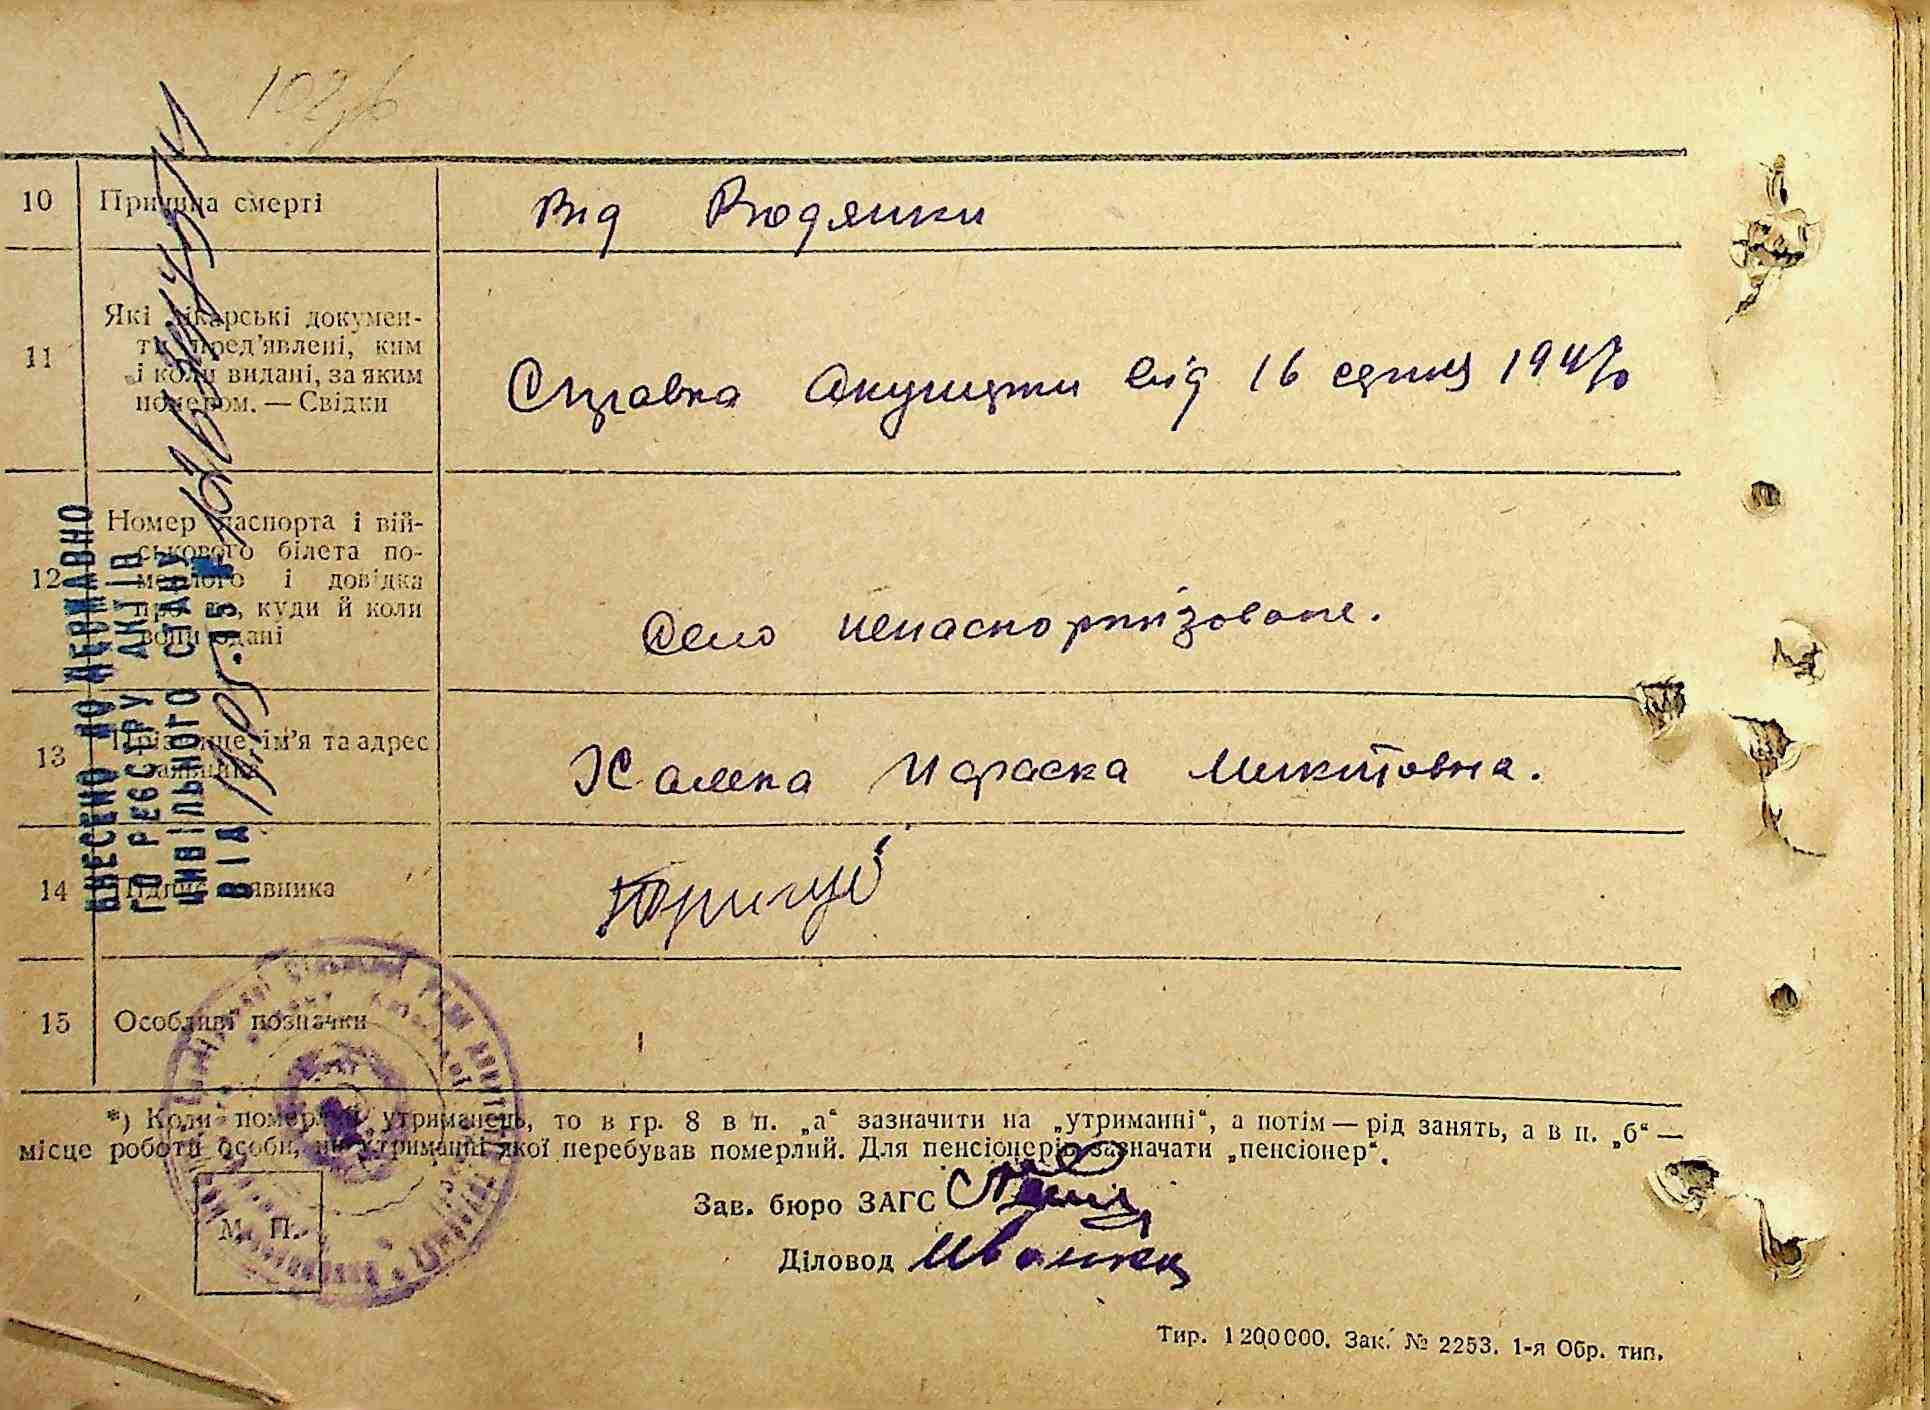 10 Причина смерті Від Водянки
11 Які лікарські документи пред'явлені, ким і коли видані, за яким номером. — Свідки
Справка Акушерки від 16 серпня 1947р
12 Номер паспорта і військового білета померлого і довідка про те, куди й коли вони здані
Село непаспортизоване.
13 Прізвище, ім'я та адрес заявника
Параска Микитовна.
14 Підпис заявника
15 Особливі позначки
*) Коли померлий утриманець, то в гр. 8 в п. „а“ зазначити на „утриманні“, а потім — рід занять, а в п. „б“ —
місце роботи особи, на утриманні якої перебував померлий. Для пенсіонерів зазначати „пенсіонер“.
М. П.
Зав. бюро ЗАГС
Діловод
Тир. 1200000. Зак. № 2253. 1-я Обр. тип.
ВНЕСЕНО ДО ДЕРЖАВНО
ГО РЕЄСТРУ АКТІВ
ЦИВІЛЬНОГО СТАНУ
ВІД